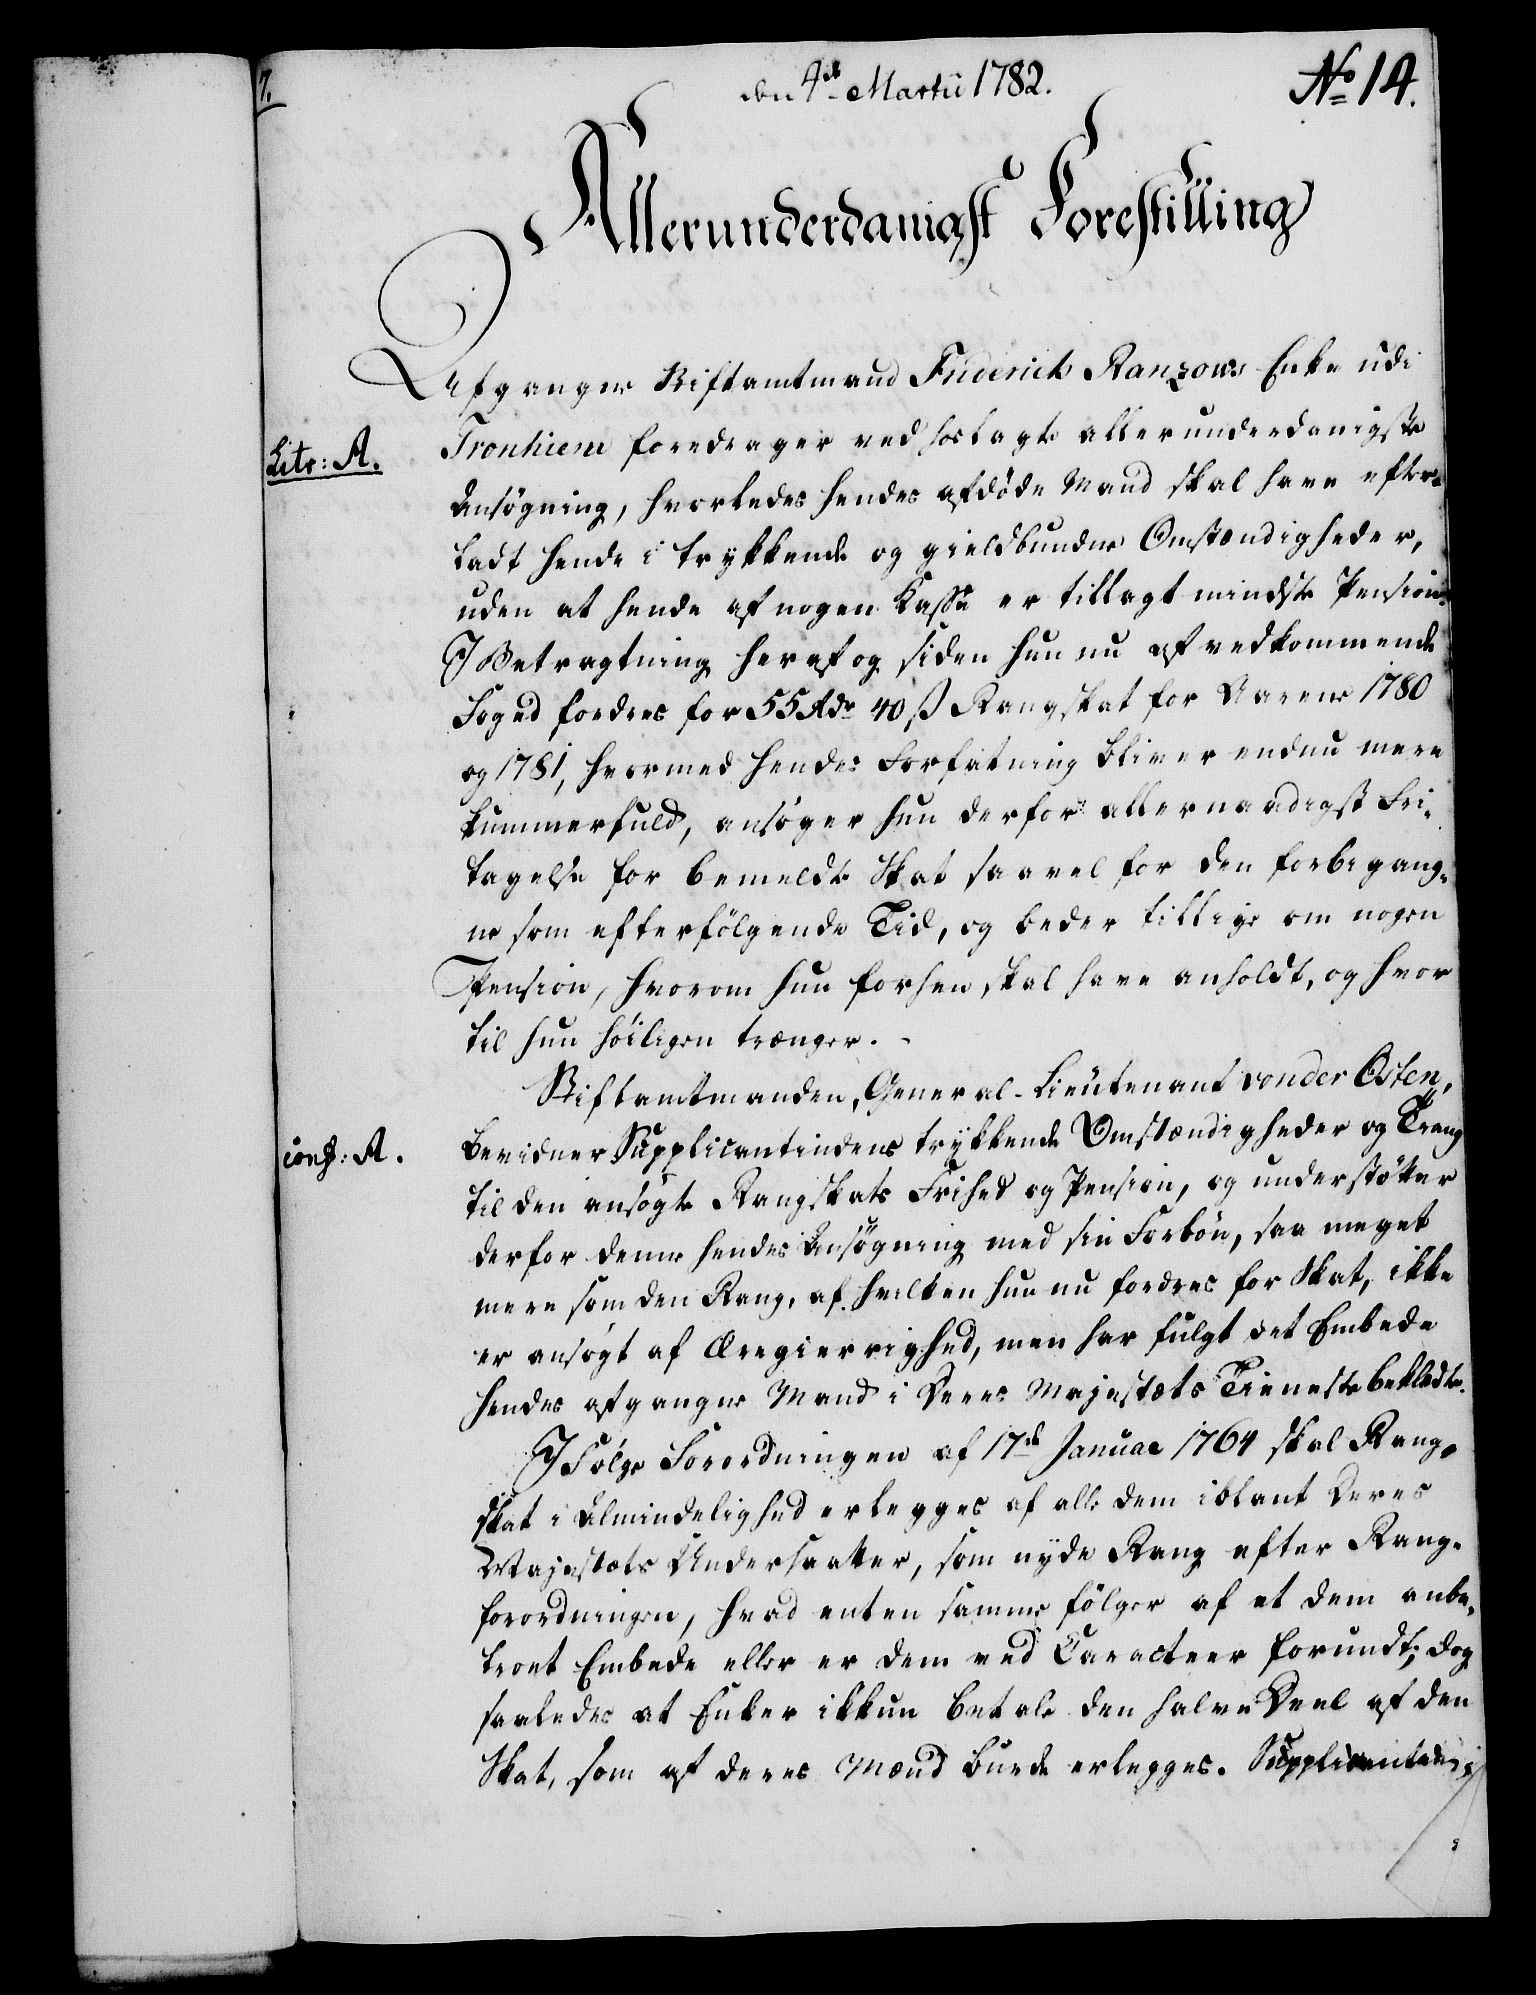 7.
den 4de Martii 1782.
No 14.
Allerunderdanigst Forestilling
Afgangne Stiftamtmand Friderich Ranzows Enke udi
Litr: A.
Tronhiem foredrager ved hoslagte allerunderdanigste
Ansøgning, hvorledes hendes afdøde Mand skal have efter-
ladt hende i trykkende og gieldbundne Omstændigheder,
uden at hende af nogen Kasse er tillagt mindste Pension.
I Betragtning heraf og siden hun nu af vedkommende
Foged fordres for 55 Rdr 40 ß Rangskat for Aarene 1780
og 1781, hvormed hendes Forfatning bliver endnu mere
kummerfuld, ansøger hun derfor allernaadigst Fri-
tagelse for bemeldte Skat saavel for den forbigang-
ne som efterfølgende Tid, og beder tillige om nogen
Pension, hvorom hun forhen skal have anholdt, og hvor
til hun høiligen trænger. -
Stiftamtmanden, General-Lieutenant von der Osten,
conf: A.
bevidner Supplicantindens trykkende Omstændigheder og Trang
til den ansøgte Rangskats Frihed og Pension, og understøtter
derfor denne hendes Ansøgning med sin Forbøn, saa meget
mere som den Rang, af hvilken hun nu fordres for Skat, ikke
er ansøgt af Æregierrighed, men har fulgt det Embede
hendes afgangne Mand i Deres Majestæts Tieneste beklædte.
I Følge Forordningen af 17de Januar 1764 skal Rang-
skat i Almindelighed erlegges af alle dem iblant Deres
Majestæts Undersaatter, som nyde Rang efter Rang-
forordningen, hvad enten samme følger af et dem anbe-
troet Embede eller er dem ved Caracteer forundt; dog
saaledes at Enker ikkun betale den halve Deel af den
Skat, som af deres Mænd burde erlegges. Supplicantin-